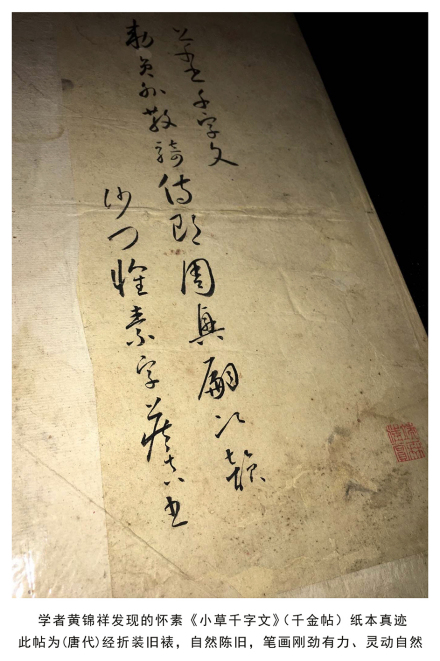 草千字文
勅員外散騎侍郎周興嗣次韻
沙門懷素字藏真書
学者黄锦祥发现的怀素《小草千字文》（千金帖）纸本真迹
此帖为(唐代)经折装旧裱，自然陈旧，笔画刚劲有力、灵动自然